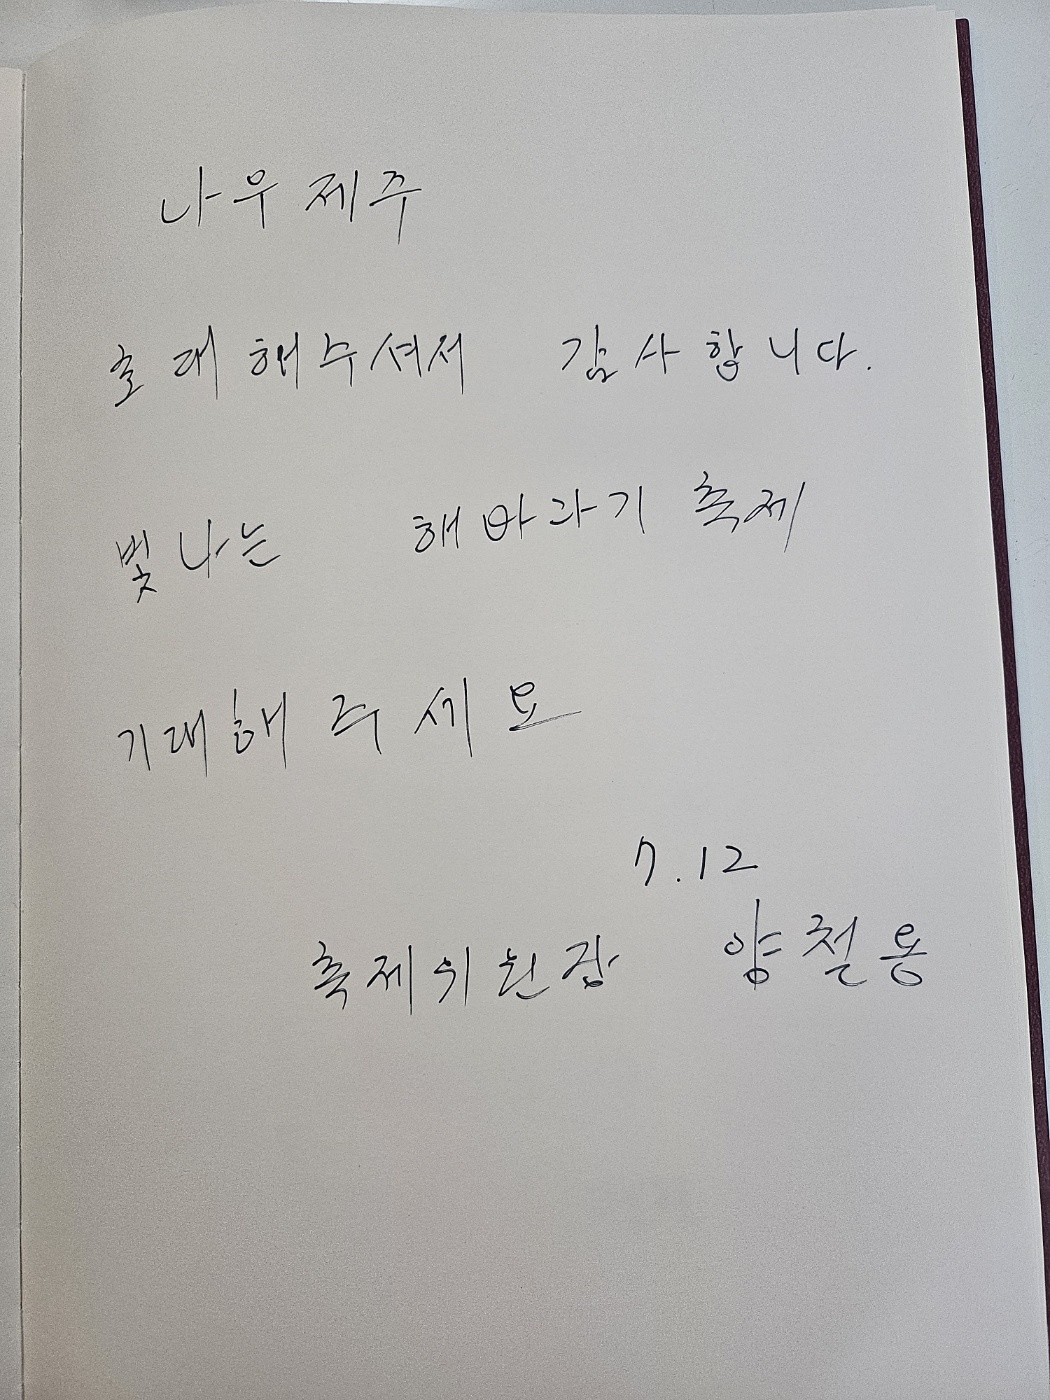 나우 제주
초대해주셔서 감사합니다.
빛나는 해바라기 축제
기대해 주세요
7.12
축제위원장 양철용